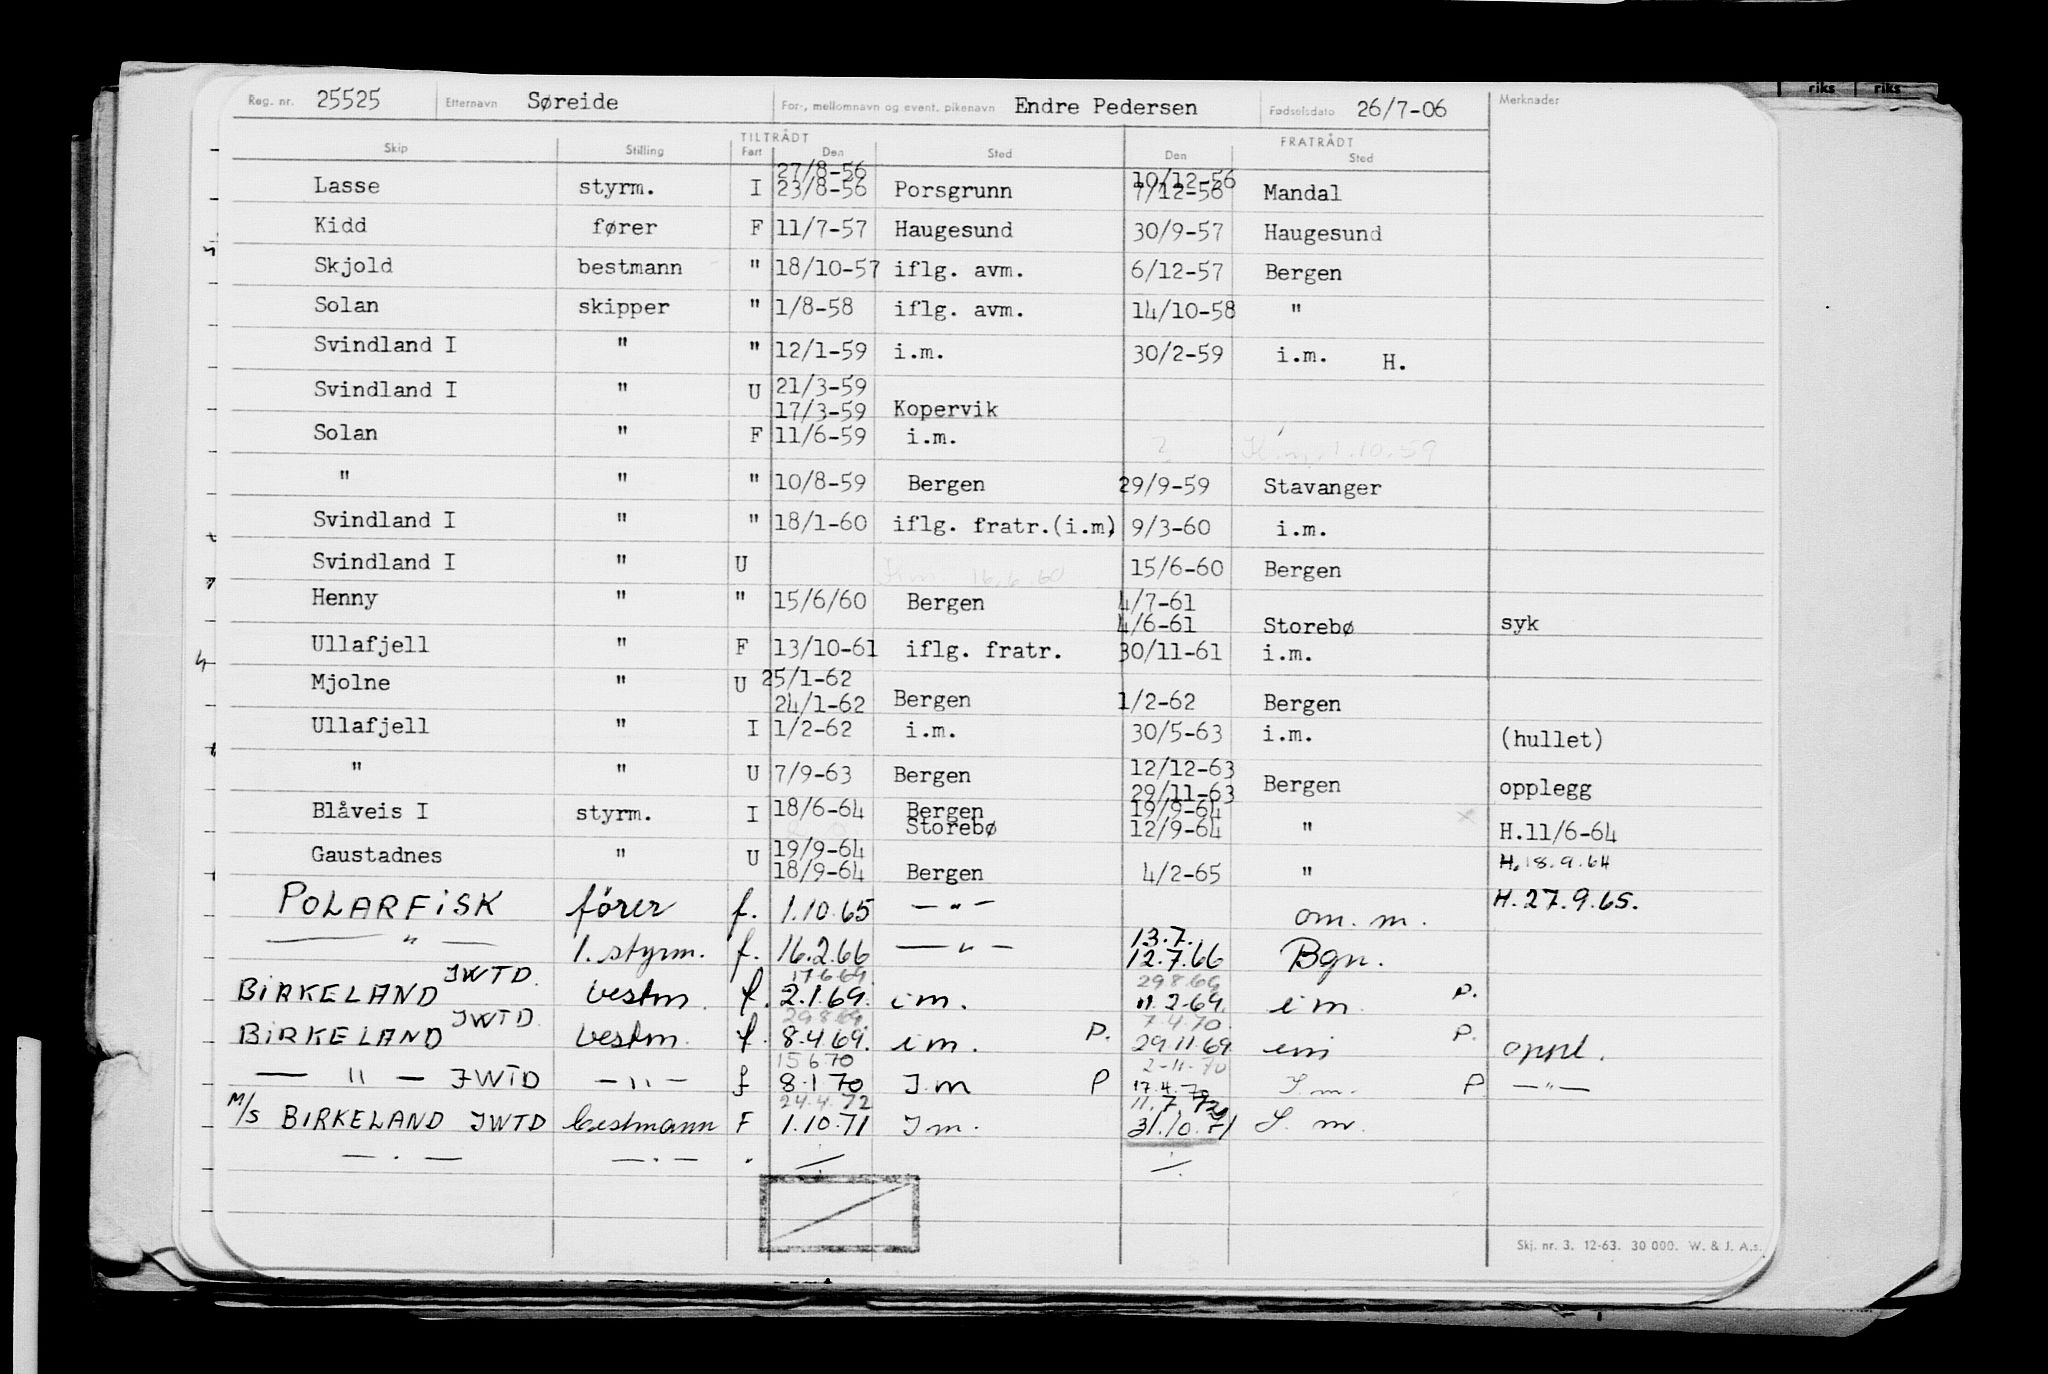 riks riks
Reg. nr. 25525 Etternavn Søreide For-, mellomnavn og event. pikenavn Endre Pedersen Fødselsdato 26/7-06 Merknader
TILTRÅDT FRATRÅDT
Skip Stilling Fart Den Sted Den Sted
27/8-56 10/12-56
Lasse styrm. I 23/8-56 Porsgrunn 7/12-56 Mandal
Kidd fører F 11/7-57 Haugesund 30/9-57 Haugesund
Skjold bestmann " 18/10-57 iflg. avm. 6/12-57 Bergen
Solan skipper " 1/8-58 iflg. avm. 14/10-58 "
Svindland I " " 12/1-59 i.m. 30/2-59 i.m. H.
Svindland I " U 21/3-59
17/3-59 Kopervik
Solan " F 11/6-59 i.m. ? 1.10.59
" " " 10/8-59 Bergen 29/9-59 Stavanger
Svindland I " " 18/1-60 iflg. fratr.(i.m) 9/3-60 i.m.
Svindland I " U 16.6.60 15/6-60 Bergen
Henny " " 15/6/60 Bergen 4/7-61
4/6-61 Storebø syk
Ullafjell " F 13/10-61 iflg. fratr. 30/11-61 i.m.
Mjolne " U 25/1-62
24/1-62 Bergen 1/2-62 Bergen
Ullafjell " I 1/2-62 i.m. 30/5-63 i.m. (hullet)
" " U 7/9-63 Bergen 12/12-63
29/11-63 Bergen opplegg
Blåveis I styrm. I 18/6-64 Bergen 19/9-64
Storebø 12/9-64 " H.11/6-64
Gaustadnes " U 19/9-64 H.18.9.64
18/9-64 Bergen 4/2-65 "
POLARFISK förer f. 1.10.65 — " — om. m. H. 27.9.65.
— " — 1. styrm. f. 16.2.66 — " — 13.7.
12.7.66 Bgn.
17.6.69 29.8.69
BIRKELAND JWTD. bestm. f. 2.1.69. i m. 11.2.69. i m. P.
29.8.69 7.4.70.
BIRKELAND JWTD. bestm. f. 8.4.69. i m. P. 29.11.69 im P. oppl.
15.6.70 2-11-70
— " — JWTD — " — f 8.1.70 I.m P 17.4.70 I.m. P — " —
24.4.72 11.7.72
M/S BIRKELAND JWTD bestmann F 1.10.71 I m. 31.10.71 I. m.
— . — — . — . ⁒ ⁒
Skj. nr. 3. 12-63. 30 000. W. & J. A.s.